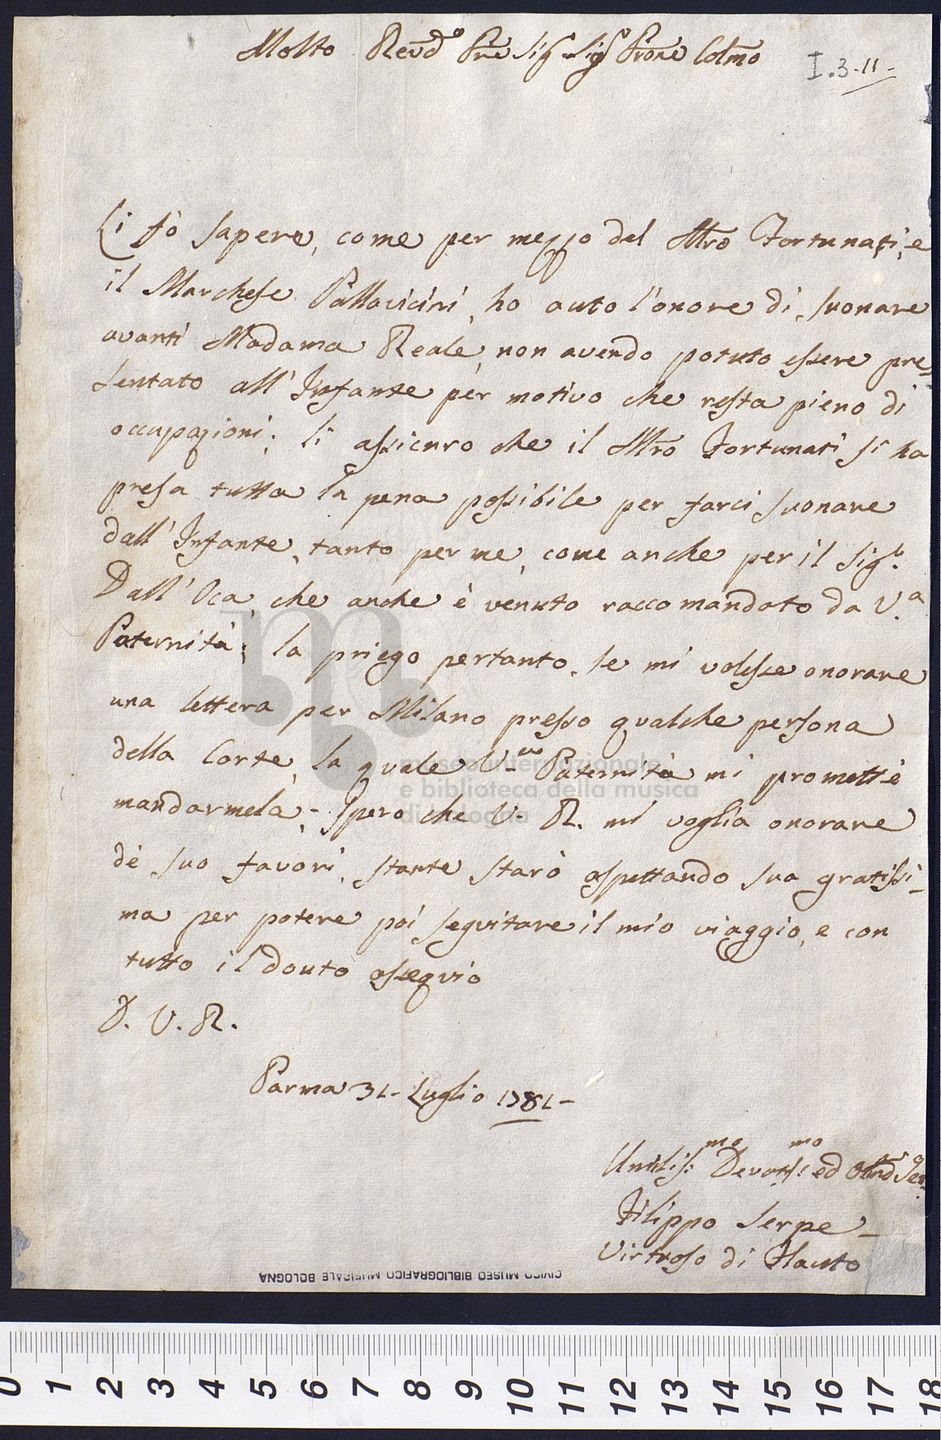 Molto Revdo Pre Sigr Sigr Prone Colmo
I.3-11-
Li fò sapere, come per mezzo del Mro Fortunati, e
il Marchese Pallavicini, ho auto l'onore di suonare
avanti Madama Reale, non avendo potuto essere pre-
sentato all'Infante per motivo che resta pieno di
occupazioni; li assicuro che il Mro Fortunati si ha
presa tutta la pena possibile per farci suonare
dall'Infante, tanto per me, come anche per il Sigr.
Dall'Oca, che anche è venuto raccomandato da V.a
Paternità; la priego pertanto, se mi volesse onorare
una lettera per Milano presso qualche persona
della Corte, la quale V- Paternità mi promette
mandarmela,- spero che V- R. mi voglia onorare
de suo favori, stante starò aspettando sua gratissi-
ma per potere poi seguitare il mio viaggio, e con
tutto il douto assequio
D. V. R.
Parma 31- Luglio 1781-
Umiliss:mo Devotiss:mo ed Obbd Ser
Filippo Serpe-
Virtuoso di Flauto
museo internazionale
e biblioteca della musica
di bologna
CIVICO MUSEO BIBLIOGRAFICO MUSICALE BOLOGNA
0 1 2 3 4 5 6 7 8 9 10 11 12 13 14 15 16 17 18